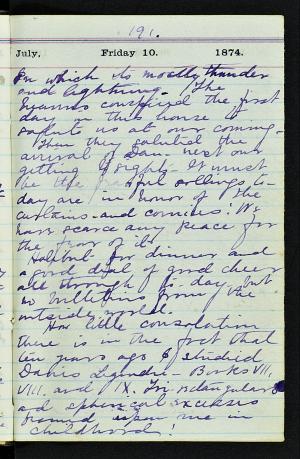 191.
July, Friday 10. 1874.
In which its mostly thunder
and lightning. The
conspired the first
day in this house to
salute us at our coming -
Then they saluted the
arrival of Dan. next our
getting to rights - It must
be the rollings to-
day are in honor of the
curtains and cornices! We
have scarce any peace for
the fear of it!
for dinner and
a good deal of good cheer
all through to-day, but
no from the
outside world.
How little consolation
there is in the fact that
ten years ago I studied
Davies Legendre - Books VII,
VIII. and IX. Tri-rectangular
and spherical excesses
upon me in
childhood!